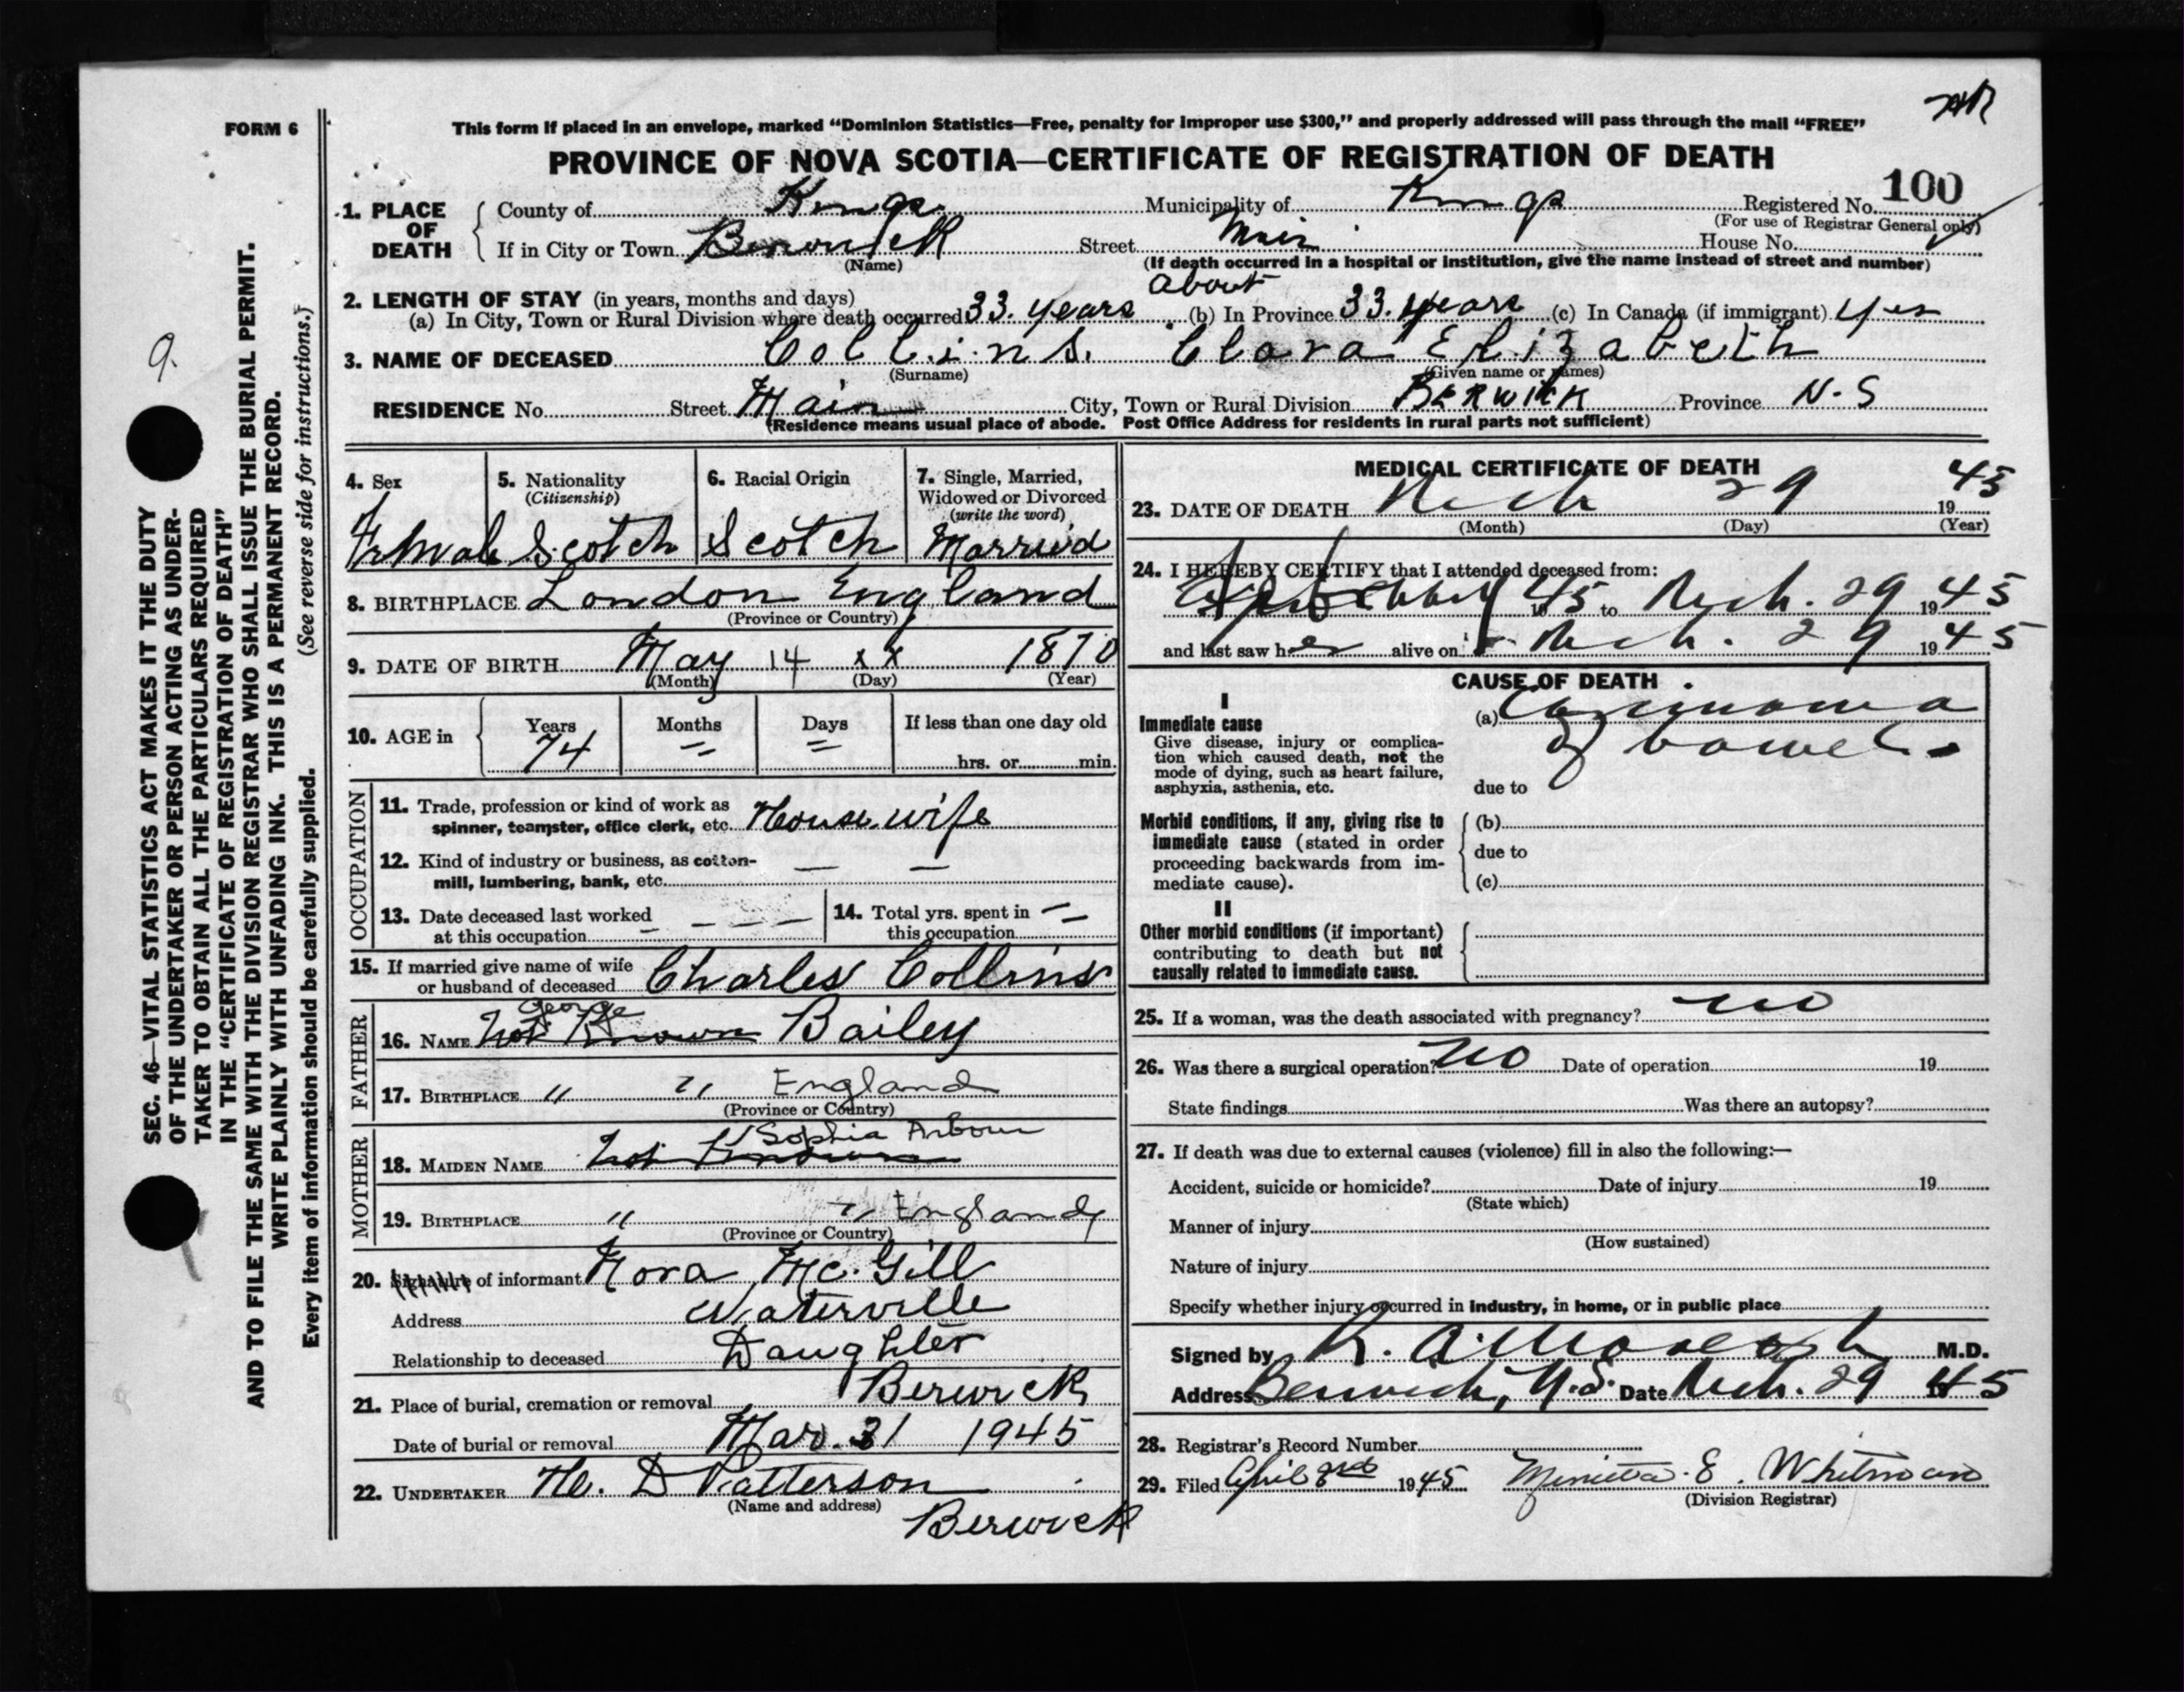 FORM 6
This form if placed in an envelope, marked “Dominion Statistics—Free, penalty for improper use $300,” and properly addressed will pass through the mail “FREE”
PROVINCE OF NOVA SCOTIA—CERTIFICATE OF REGISTRATION OF DEATH
1. PLACE OF DEATH
County of Kings Municipality of Kings Registered No. 100
(For use of Registrar General only)
If in City or Town Berwick Street Main House No.
(Name) (If death occurred in a hospital or institution, give the name instead of street and number)
2. LENGTH OF STAY (in years, months and days) about
(a) In City, Town or Rural Division where death occurred 33. years (b) In Province 33. years (c) In Canada (if immigrant) Yes
3. NAME OF DECEASED Collins. Clara Elizabeth
(Surname) (Given name or names)
RESIDENCE No. Street Main City, Town or Rural Division BERWICK Province N.S
(Residence means usual place of abode. Post Office Address for residents in rural parts not sufficient)
4. Sex 5. Nationality (Citizenship) 6. Racial Origin 7. Single, Married, Widowed or Divorced (write the word)
Female Scotch Scotch Married
8. BIRTHPLACE London England
(Province or Country)
9. DATE OF BIRTH May 14 x x 1870
(Month) (Day) (Year)
10. AGE in Years Months Days If less than one day old
74 hrs. or min.
OCCUPATION
11. Trade, profession or kind of work as
spinner, teamster, office clerk, etc. House wife
12. Kind of industry or business, as cotton-
mill, lumbering, bank, etc.
13. Date deceased last worked
at this occupation
14. Total yrs. spent in
this occupation
15. If married give name of wife
or husband of deceased Charles Collins
FATHER
George
16. NAME Not Known Bailey
17. BIRTHPLACE " " England
(Province or Country)
MOTHER
Sophia Arbour
18. MAIDEN NAME Not Known
19. BIRTHPLACE " " England
(Province or Country)
20. Signature of informant Nora McGill
Address Waterville
Relationship to deceased Daughter
21. Place of burial, cremation or removal Berwick
Date of burial or removal Mar. 31 1945
22. UNDERTAKER H. D Patterson
(Name and address)
Berwick
MEDICAL CERTIFICATE OF DEATH
23. DATE OF DEATH Mch 29 1945
(Month) (Day) (Year)
24. I HEREBY CERTIFY that I attended deceased from:
45 to Mch. 29 1945
and last saw her alive on Mch. 29 1945
CAUSE OF DEATH
I
Immediate cause
Give disease, injury or complica-
tion which caused death, not the
mode of dying, such as heart failure,
asphyxia, asthenia, etc.
(a) Carcinoma
of bowel.
due to
Morbid conditions, if any, giving rise to
immediate cause (stated in order
proceeding backwards from im-
mediate cause).
(b)
due to
(c)
II
Other morbid conditions (if important)
contributing to death but not
causally related to immediate cause.
25. If a woman, was the death associated with pregnancy? no
26. Was there a surgical operation? no Date of operation 19
State findings Was there an autopsy?
27. If death was due to external causes (violence) fill in also the following:—
Accident, suicide or homicide? Date of injury 19
(State which)
Manner of injury
(How sustained)
Nature of injury
Specify whether injury occurred in industry, in home, or in public place
Signed by M.D.
Address Berwick, N.S. Date Mch. 29 1945
28. Registrar's Record Number
29. Filed April 1945 E. Whitman
(Division Registrar)
9.
SEC. 46—VITAL STATISTICS ACT MAKES IT THE DUTY
OF THE UNDERTAKER OR PERSON ACTING AS UNDER-
TAKER TO OBTAIN ALL THE PARTICULARS REQUIRED
IN THE “CERTIFICATE OF REGISTRATION OF DEATH”
AND TO FILE THE SAME WITH THE DIVISION REGISTRAR WHO SHALL ISSUE THE BURIAL PERMIT.
WRITE PLAINLY WITH UNFADING INK. THIS IS A PERMANENT RECORD.
Every item of information should be carefully supplied. (See reverse side for instructions.)